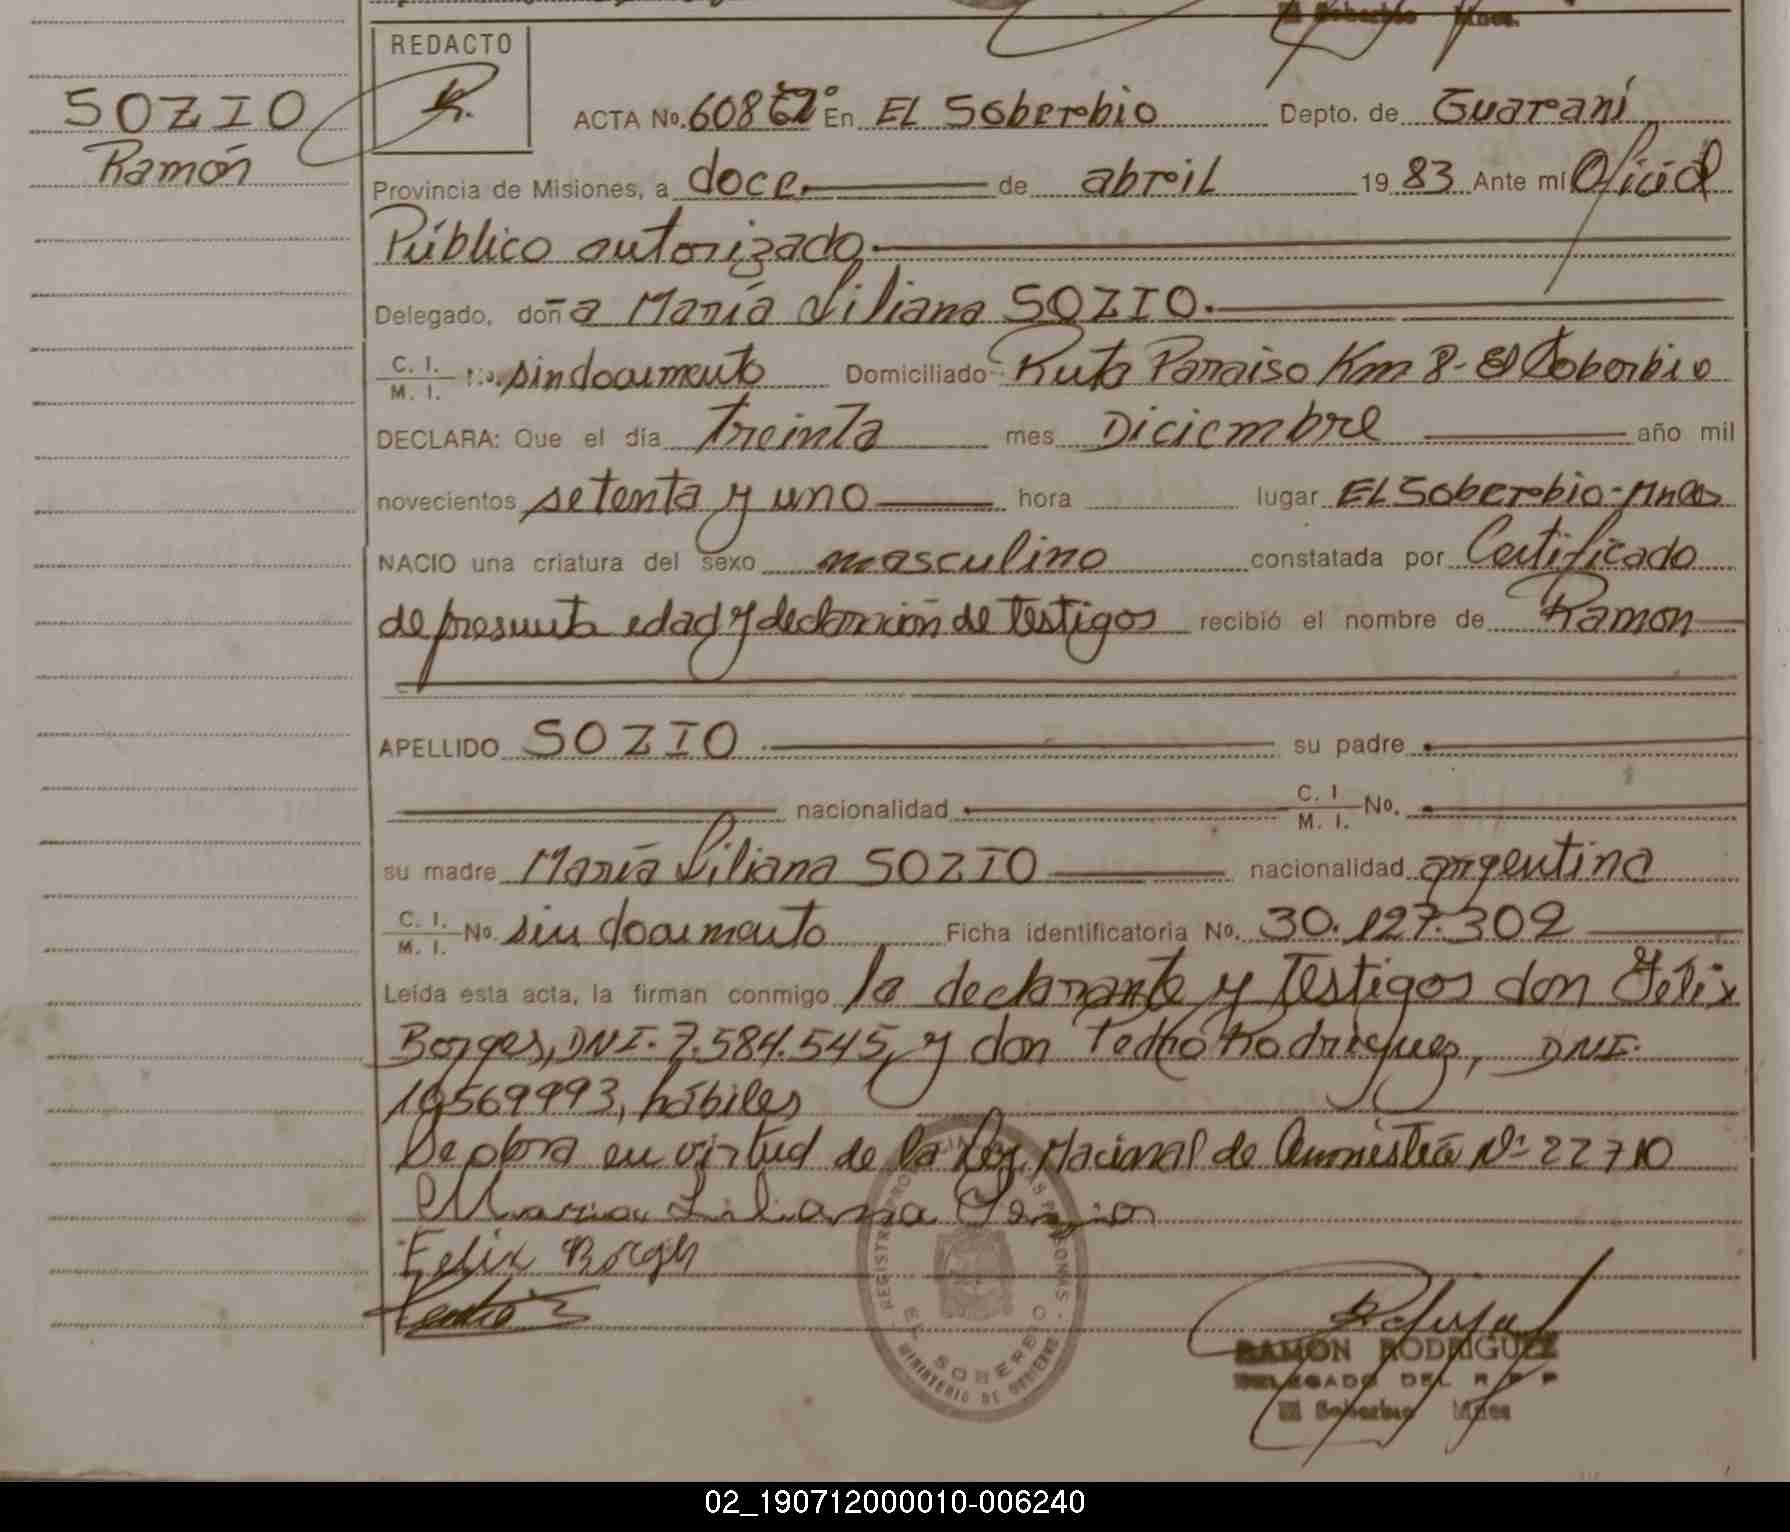 REDACTO
SOZIO
Ramón
ACTA No. 608 En EL Soberbio Depto. de Guaraní
Provincia de Misiones, a doce de abril 1983 Ante mí Oficial
Público autorizado
Delegado, doña María Liliana SOZIO.
C. I. M. I. No. sin documento Domiciliado Ruta Paraiso Km 8 - El Soberbio
DECLARA: Que el día treinta mes Diciembre año mil
novecientos setenta y uno hora lugar EL Soberbio - Mnes
NACIO una criatura del sexo masculino constatada por Certificado
de presunta edad y declaración de testigos recibió el nombre de Ramon
APELLIDO SOZIO su padre
nacionalidad C. I. M. I. No.
su madre María Liliana SOZIO nacionalidad argentina
C. I. M. I. No. sin documento Ficha identificatoria No. 30.127.302
Leída esta acta, la firman conmigo la declarante y Testigos don Félix
Borges, DNI. 7.584.545, y don Pedro Rodriguez, DNI.
10569993, hábiles
Se obra en virtud de la Ley Nacional de Amnistía Nº 22710
Maria Liliana Sozio
Felix Borges
Pedro
EL SOBERBIO
MINISTERIO DE GOBIERNO
RAMON RODRIGUEZ
DELEGADO DEL R P P
El Soberbio Mnes
02_190712000010-006240